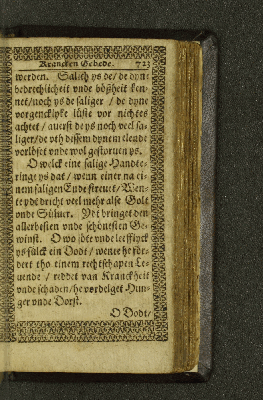 Krancken Gebede. 723
werden. Salich ys de / de dyne
bedrechlicheit vnde bößheit ken-
net / noch ys de saliger / de dyne
vorgencklyke lüste vor nichtes
achtet / auerst de ys noch veel sa-
liger / de vth dessem dynem elende
vorlöset vnde wol gestoruen ys.
O welck eine salige Handte-
ringe ys dat / wenn einer na ei-
nem saligen Ende streuet / Wen-
te ydt bricht veel mehr alse Golt
vnde Süluer. Ydt bringet den
allerbesten vnde schönesten Ge-
winst. O wo söte vnde leefflyck
ys sülck ein Dodt / wenet he för-
dert tho einem rechtschapen Le-
uende / reddet van Kranckheit
vnde schaden / he vordelget Hun-
ger vnde Dorst.
O Dodt /